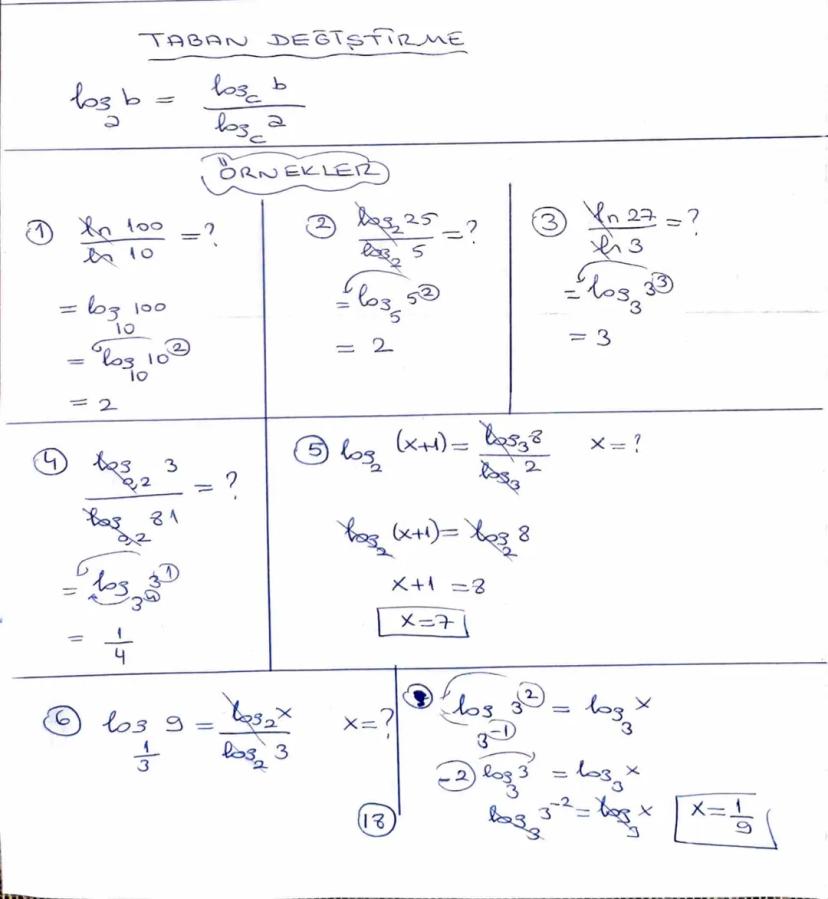 TABAN DEĞİŞTİRME
log_a b = log_c b / log_c a
ÖRNEKLER
① ln 100 / ln 10 = ?
= log_10 100
= log_10 10^②
= 2
② log_2 25 / log_2 5 = ?
= log_5 5^②
= 2
③ ln 27 / ln 3 = ?
= log_3 3^③
= 3
④ log_0,2 3 / log_0,2 81 = ?
= log_3^④ 3^①
= 1/4
⑤ log_2 (x+1) = log_3 8 / log_3 2 x = ?
log_2 (x+1) = log_2 8
x+1 = 8
x=7
⑥ log_1/3 9 = log_2 x / log_2 3 x = ?
log_3^(-1) 3^② = log_3 x
-2 log_3 3 = log_3 x
log_3 3^-2 = log_3 x
x = 1/9
18